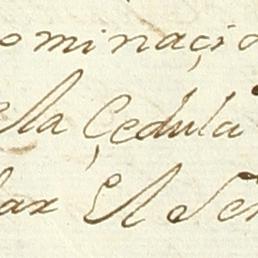 ominaçio
ella Çedula
lax El Señ